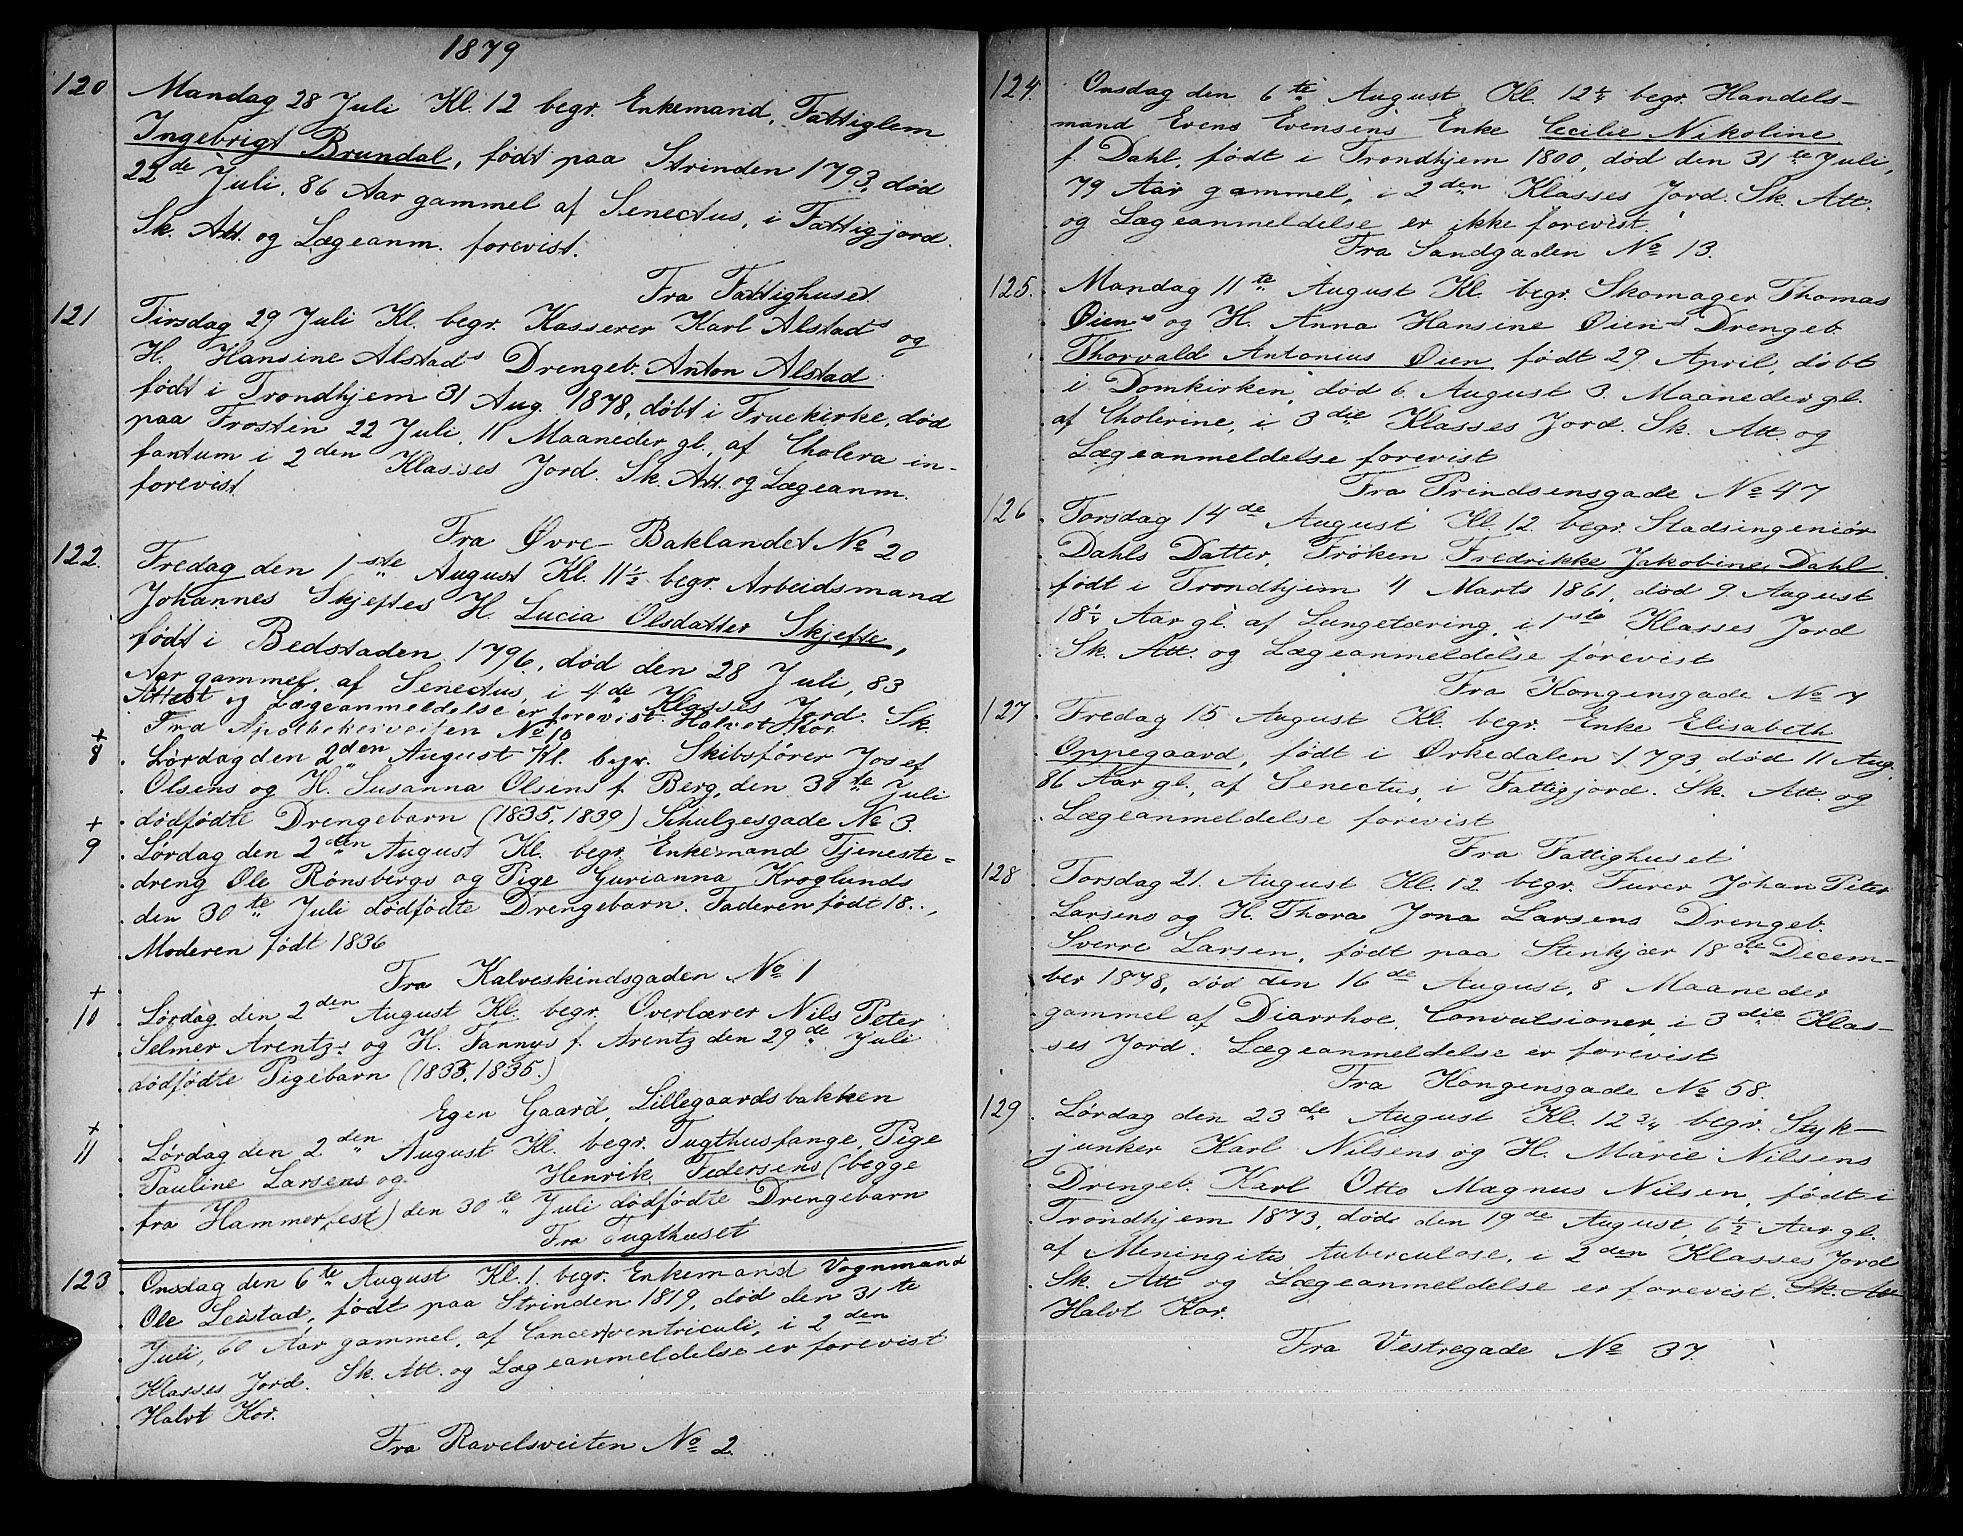 1879
120 Mandag 28 Juli Kl. 12 begr. Enkemand, Fattiglem
Ingebrigt Brundal, født paa Strinden 1793, død
22de Juli, 86 Aar gammel af Senectus, i Fattigjord.
Sk. Att. og Lægeanm. forevist.
Fra Fattighuset.
121 Tirsdag 29 Juli Kl. begr. Kasserer Karl Alstads og
H. Hansine Alstads Drengeb. Anton Alstad
født i Trondhjem 31 Aug. 1878, døbt i Fruekirke, død
paa Frosten 22 Juli, 11 Maaneder gl., af Cholera in-
fantum i 2den Klasses Jord. Sk. Att. og Lægeanm.
forevist
Fra Øvre-Baklandet No 20
122. Fredag den 1ste August Kl. 11½ begr. Arbeidsmand
Johannes Skjeftes H. Lucia Olsdatter Skjefte,
født i Bedstaden 1796, død den 28 Juli, 83
Aar gammel, af Senectus, i 4de Klasses Jord. Sk.
Attest og Lægeanmeldelse er forevist. Halvt Kor.
Fra Apothekerveiten No 10
+ 8 Lørdag den 2den August Kl. begr. Skibsfører Josef
Olsens og H. Susanna Olsens f. Berg, den 30te Juli
dødfødte Drengebarn (1835, 1839) Schulzesgade No 3.
+ 9 Lørdag den 2den August Kl. begr. Enkemand Tjeneste-
dreng Ole Rønsbergs og Pige Gurianna Kroglunds
den 30te Juli dødfødte Drengebarn. Faderen født 18..,
Moderen født 1836
Fra Kalveskindsgaden No 1
+ 10 Lørdag den 2den August Kl. begr. Overlærer Nils Peter
Selmer Arentzs og H. Fannys f. Arentz den 29de Juli
dødfødte Pigebarn (1833, 1835.)
Egen Gaard, Lillegaardsbakken
+ 11 Lørdag den 2den August Kl. begr. Tugthusfange, Pige
Pauline Larsens og Henrik Pedersens (begge
fra Hammerfest) den 30te Juli dødfødte Drengebarn
Fra Tugthuset
123 Onsdag den 6te August Kl. 1. begr. Enkemand Vognmand
Ole Leistad, født paa Strinden 1819, død den 31te
Juli, 60 Aar gammel, af Cancer ventriculi, i 2den
Klasses Jord. Sk. Att. og Lægeanmeldelse er forevist
Halvt Kor.
Fra Ravelsveiten No 2.
124. Onsdag den 6te August Kl. 12¼ begr. Handels-
mand Evens Evensens Enke Cecilie Nikoline
f. Dahl, født i Trondhjem 1800, død den 31te Juli,
79 Aar gammel, i 2den Klasses Jord. Sk. Att.
og Lægeanmeldelse er ikke forevist.
Fra Sandgaden No 13.
125. Mandag 11te August Kl. begr. Skomager Thomas
Øiens og H. Anna Hansine Øiens Drengeb.
Thorvald Antonius Øien født 29 April, døbt
i Domkirken, død 6 August 3. Maaneder gl.
af Cholerine, i 3die Klasses Jord. Sk. Att. og
Lægeanmeldelse forevist
Fra Prindsensgade No 47
126 Torsdag 14de August Kl. 12. begr. Stadsingeniør
Dahls Datter, Frøken Fredrikke Jakobine Dahl
født i Trondhjem 4 Marts 1861, død 9 August
18¼ Aar gl. af Lungetæring, i 1ste Klasses Jord
Sk. Att. og Lægeanmeldelse forevist
Fra Kongensgade No 7
127 Fredag 15 August Kl. begr. Enke Elisabeth
Oppegaard, født i Ørkedalen 1793, død 11 Aug.
86 Aar gl., af Senectus, i Fattigjord. Sk. Att. og
Lægeanmeldelse forevist
Fra Fattighuset
128 Torsdag 21. August Kl. 12 begr. Furer Johan Peter
Larsens og H. Thora Jona Larsens Drengeb.
Sverre Larsen, født paa Stenkjær 18de Decem-
ber 1878, død den 16de August, 8 Maaneder
gammel af Diarrhoe, Convulsioner, i 3die Klas-
ses Jord. Lægeanmeldelse er forevist
Fra Kongensgade No 58.
129 Lørdag den 23de August Kl. 12¾ begr. Styk-
junker Karl Nilsens og H. Marie Nilsens
Drengeb. Karl Otto Magnus Nilsen, født i
Trondhjem 1873, død den 19de August, 6½ Aar gl.
af Meningitis tuberculose, i 2den Klasses Jord
Sk. Att og Lægeanmeldelse er forevist. Sk. Att
Halvt Kor.
Fra Vestregade No 37.